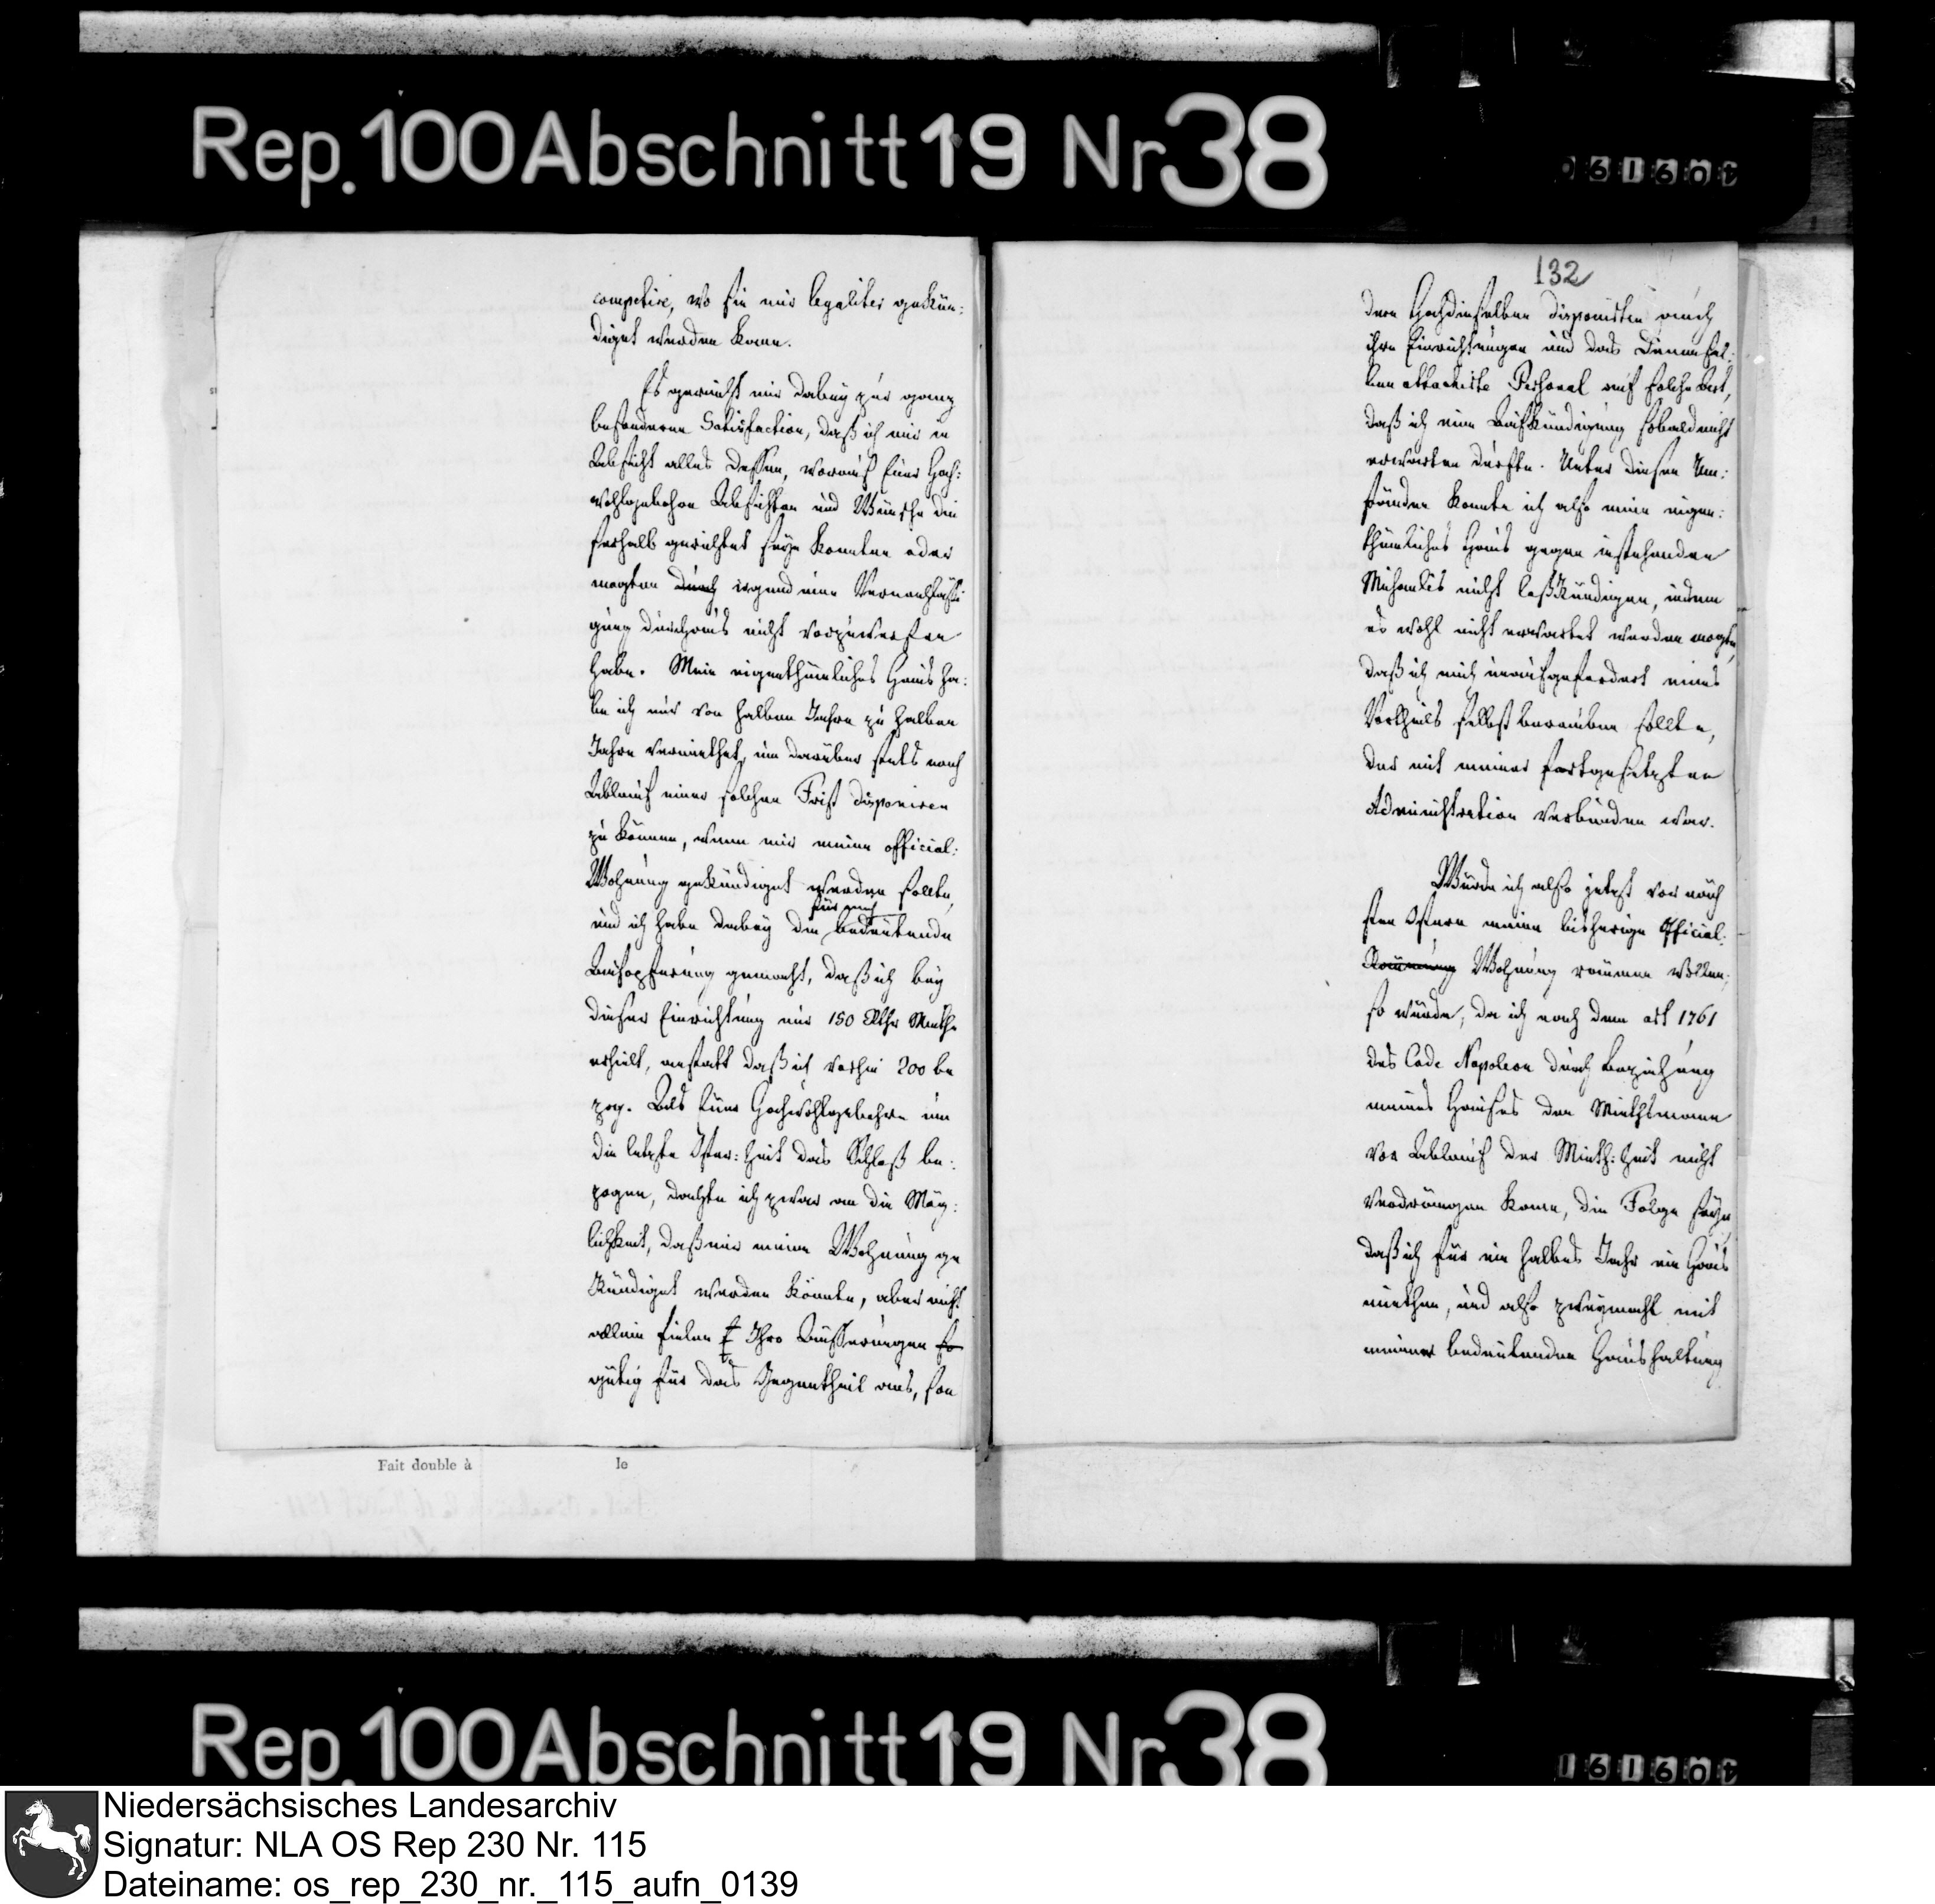 Rep. 100 Abschnitt 19 Nr 38
competire, wo sie mir legaliter gekün:
diget werden kann.
Es gereicht mir dabey zur ganz
besonderen Satisfaction, daß ich mir in
Absicht alles dessen, worauf Euer Hoch:
wohlgebohrn Absichten und Wünsche die
serhalb gerichtet seyn konnten oder
mogten durch irgend eine Vernachläßi
gung durchaus nicht vorzuwerfen
habe. Mein eigenthümliches Haus ha:
be ich nur von halben Jahre zu halben
Jahre vermiethet, um darüber stets nach
Ablauf einer solchen Frist disponiren
zu können, wenn mir meine official:
Wohnung gekündiget werden sollte,
für mich
und ich habe dabey die bedeutende
Aufopferung gemacht, daß ich bey
dieser Einrichtung nur 150 Rthr Miethe
erhielt, anstatt daß ich vorhin 200 be
zog. Als Euer Hochwohlgebohrn um
die letzte Oster: Zeit das Schloß be:
zogen, dachte ich zwar an die Mög:
lichkeit, daß mir meine Wohnung ge
kündiget werden könnte, aber nicht
allein fielen Ihro Äusserungen so
gütig für das Gegentheil aus, son
Fait double à le
132
dern Hochdieselben disponirten auch
ihre Einrichtungen und das Denensel:
ben attachirte Personal auf solche Art,
daß ich eine Aufkündigung sobald nicht
erwarten dürfte. Unter diesen Um:
ständen konnte ich also mein eigen:
thümliches Haus gegen instehenden
Michaelis nicht loßkündigen, indem
es wohl nicht erwartet werden mogte,
daß ich mich unaufgefordert eines
Vortheils selbst berauben sollte,
der mit meiner fortgesetzten
Administration verbunden war.
Würde ich also jetzt vor näch
sten Ostern meine bisherige Official:
Räumung Wohnung räumen wollen,
so würde, da ich nach dem art 1761
des Code Napoleon durch Beziehung
meines Hauses den Miethsmann
vor Ablauf der Mieth: Zeit nicht
verdrängen kann, die Folge seyn,
daß ich für ein halbes Jahr ein Haus
miethen, und also zweymahl mit
meiner bedeutenden Haushaltung
Rep. 100 Abschnitt 19 Nr 38
Niedersächsisches Landesarchiv
Signatur: NLA OS Rep 230 Nr. 115
Dateiname: os_rep_230_nr._115_aufn_0139